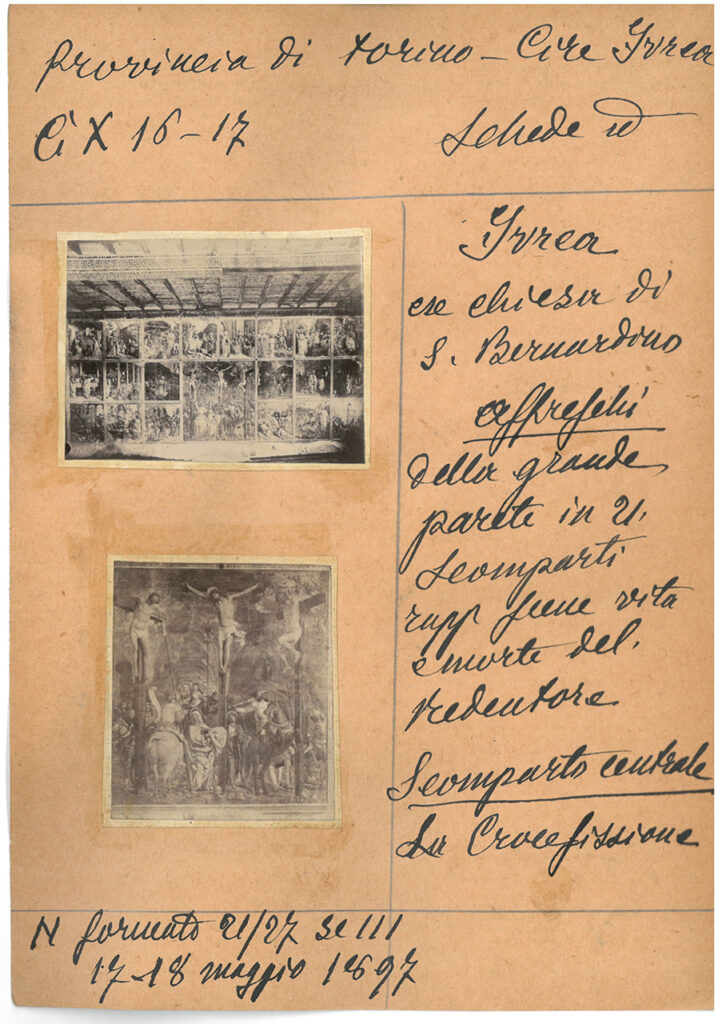 Provincia di Torino - Circ Ivrea
Ci X 16-17
Schede
Ivrea
ex chiesa di
S. Bernardino
affreschi
della grande
parete in 21.
scomparti
rapp scene vita
e morte del.
Redentore
Scomparto centrale
La Crocefissione
N formato 21/27 Se III
17-18 maggio 1897